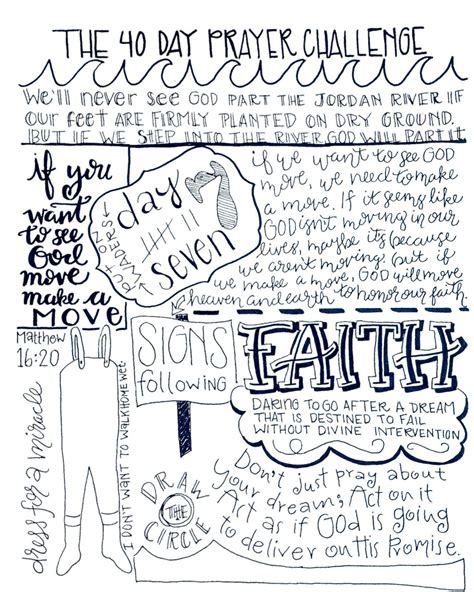 THE 40 DAY PRAYER CHALLENGE
We'll never see GOD PART THE JORDAN RIVER IF
OUR feet ARE FIRMLY PLANTED ON DRY GROUND.
BUT IF WE STEP INTO THE RIVER, GOD WILL PART IT
if you
want
to see
God
move
make a
MOVE
Matthew
16:20
PUT ON
WADERS
day 7
seven
if we want to see GOD
move, we need to make
a move. If it seems like
GOD isn't moving in our
lives, maybe it's because
we aren't moving. but if
we make a move, GOD will move
heaven and earth to honor our faith.
SIGNS
following
FAITH
DARING TO GO AFTER A DREAM
THAT IS DESTINED TO FAIL
WITHOUT DIVINE INTERVENTION
dress for a miracle
I DON'T WANT TO WALK HOME WET.
DRAW
THE
CIRCLE
Don't just pray about
your dream; Act on it
Act as if GOD is going
to deliver on His Promise.